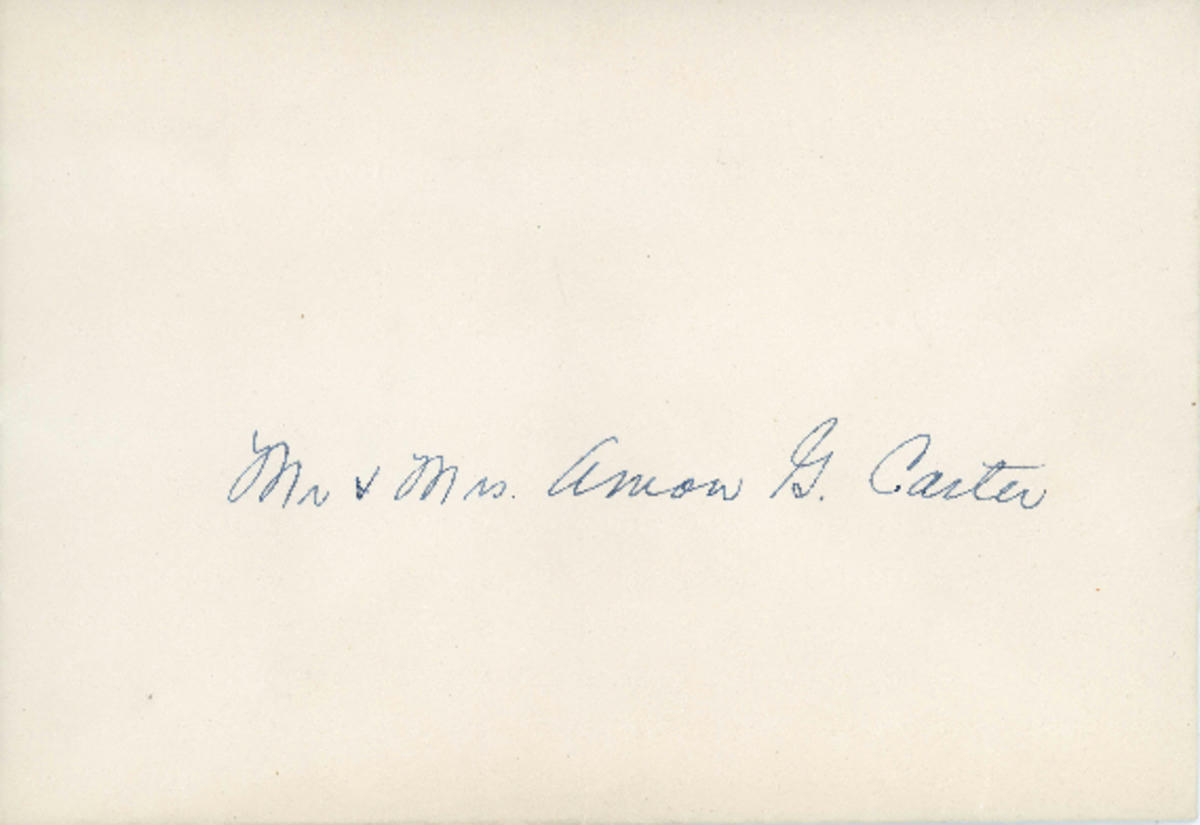 Mr & Mrs. Amon G. Carter